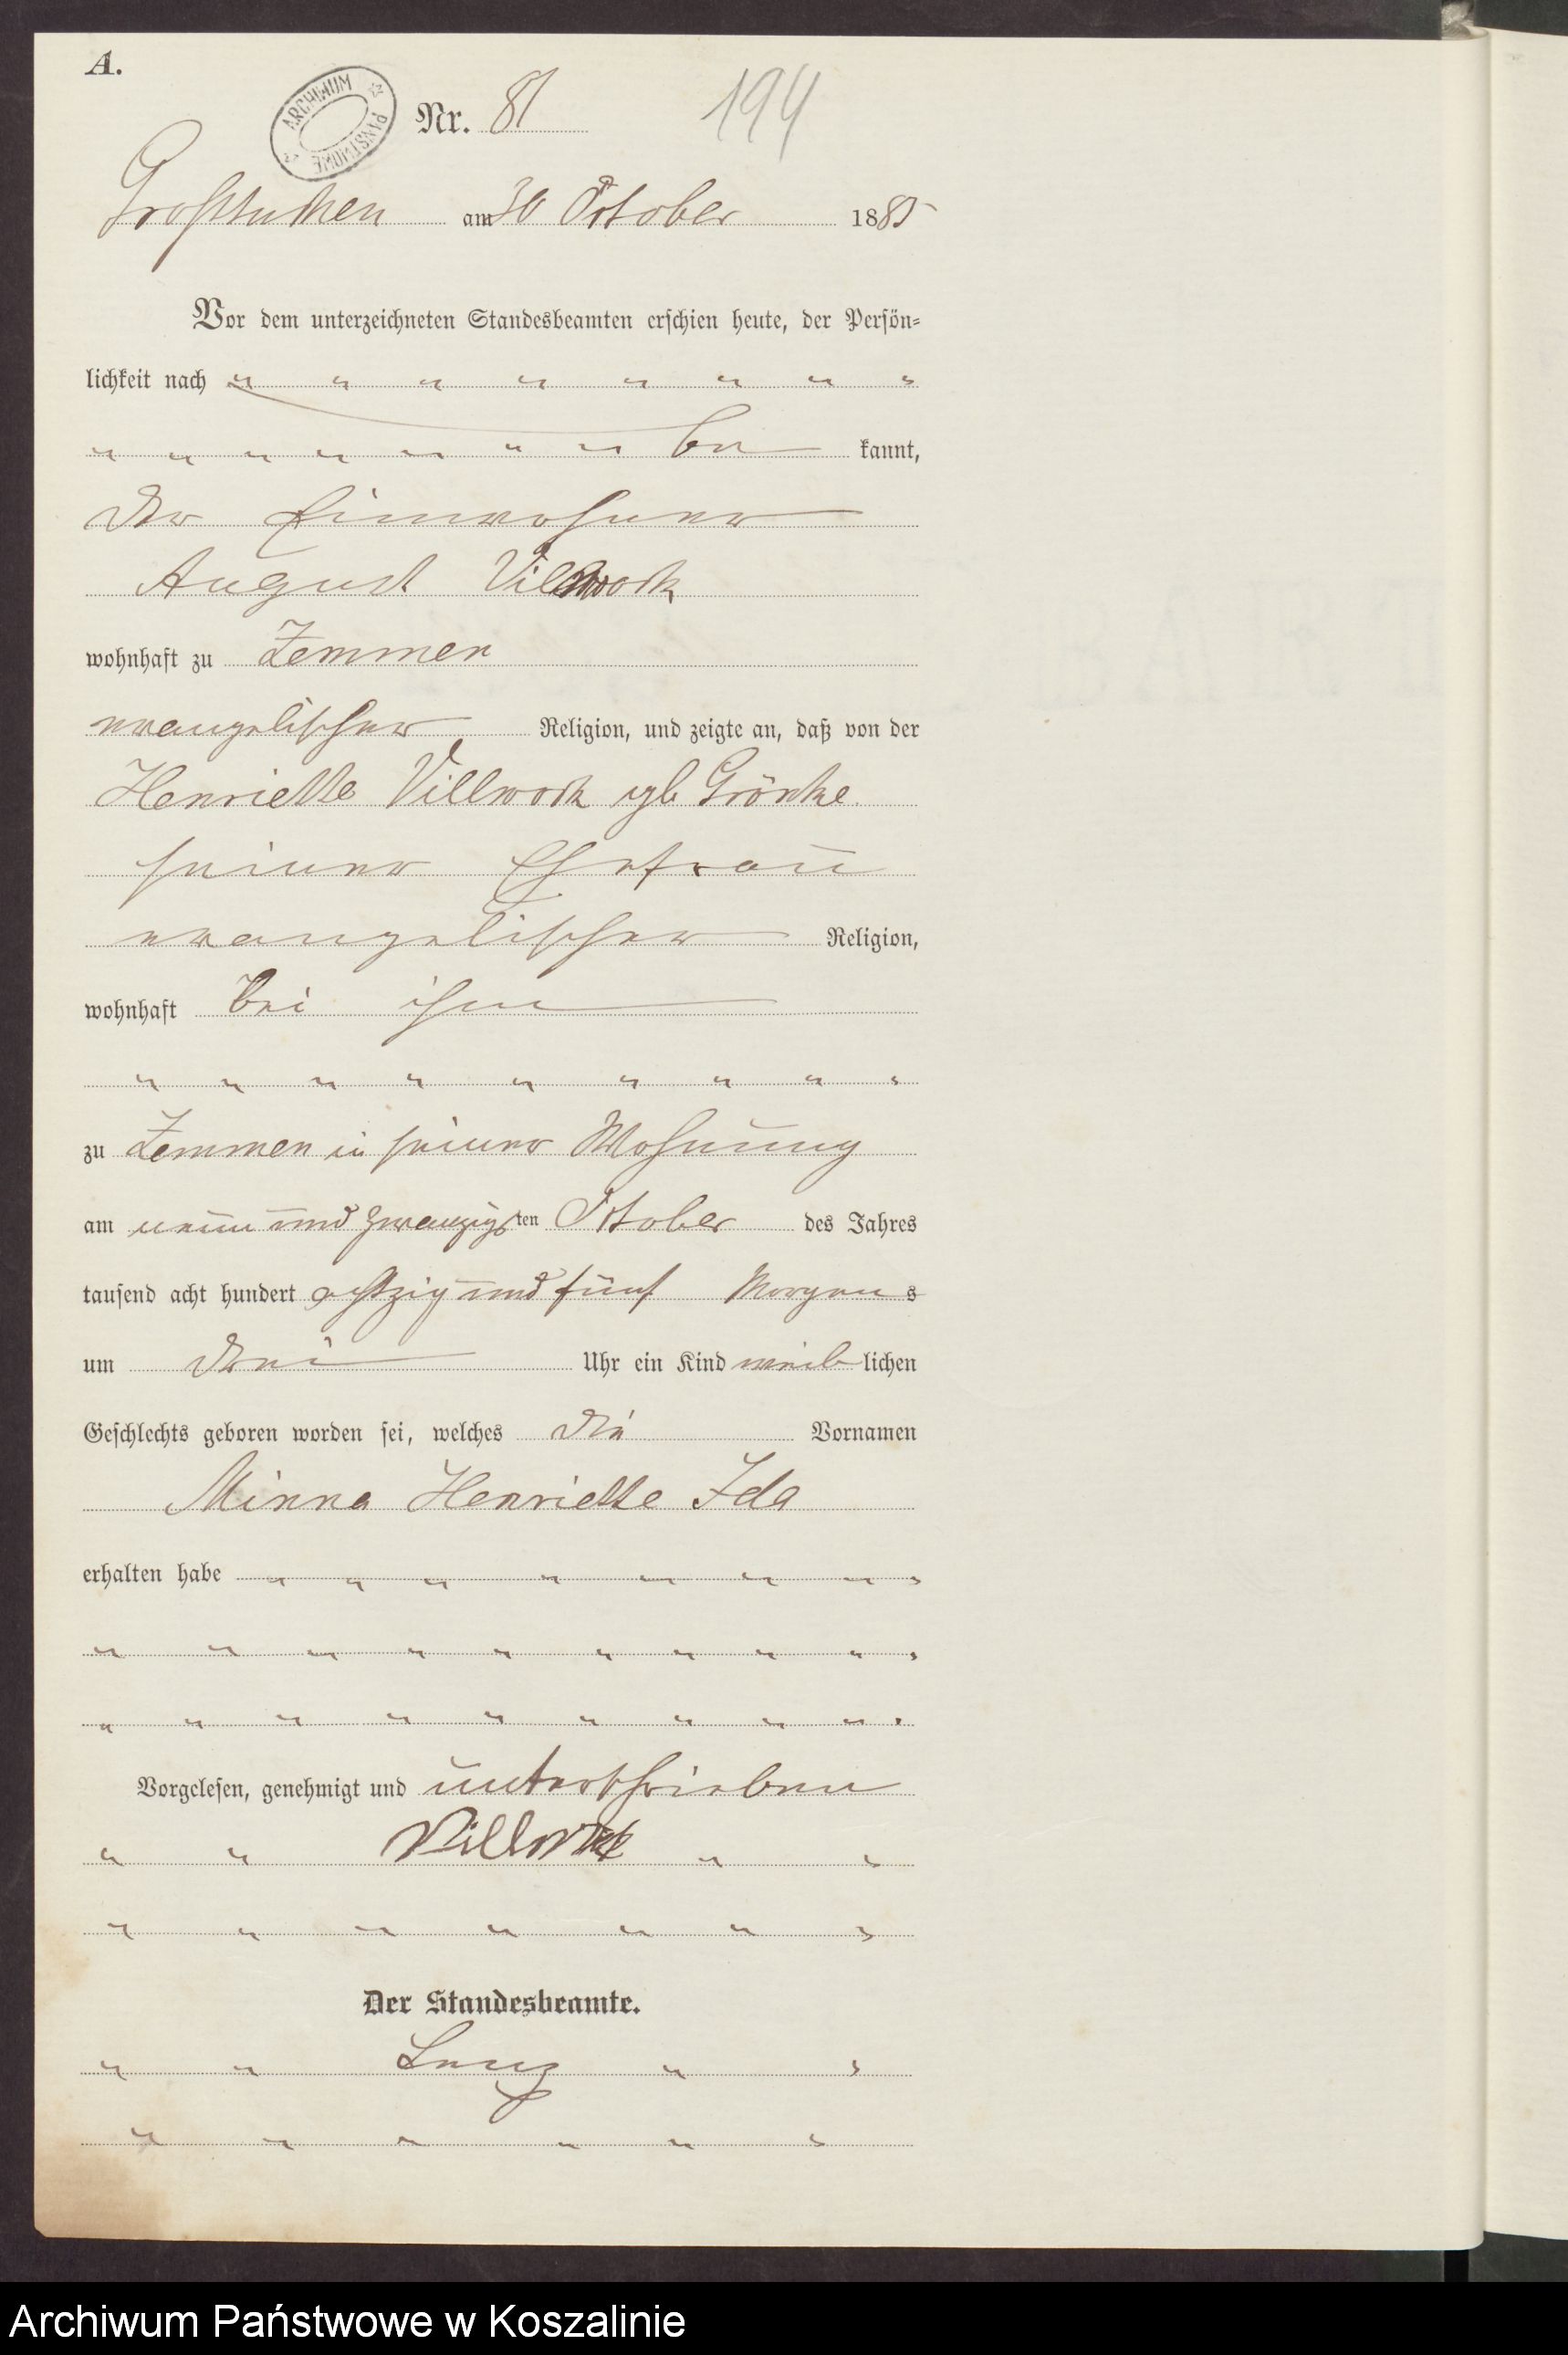 A.
ARCHIWUM PAŃSTWOWE
Nr. 81
194
Großtuchen am 30 October 1885
Vor dem unterzeichneten Standesbeamten erschien heute, der Persön-
lichkeit nach " " " " " " " "
" " " " " " " be kannt,
der Einwohner
August Villwock
wohnhaft zu Zemmen
evangelischer Religion, und zeigte an, daß von der
Henriette Villwock geb Grönke
seiner Ehefrau
evangelischer Religion,
wohnhaft bei ihm
" " " " " " " " "
zu Zemmen in seiner Wohnung
am neun und zwanzigsten October des Jahres
tausend acht hundert achtzig und fünf Morgens
um drei Uhr ein Kind weiblichen
Geschlechts geboren worden sei, welches die Vornamen
Minna Henriette Ida
erhalten habe " " " " " " " "
" " " " " " " " " "
" " " " " " " " " "
Vorgelesen, genehmigt und unterschrieben
" " Villwock " "
" " " " " " "
Der Standesbeamte.
" " Lenz " "
" " " " " "
Archiwum Państwowe w Koszalinie